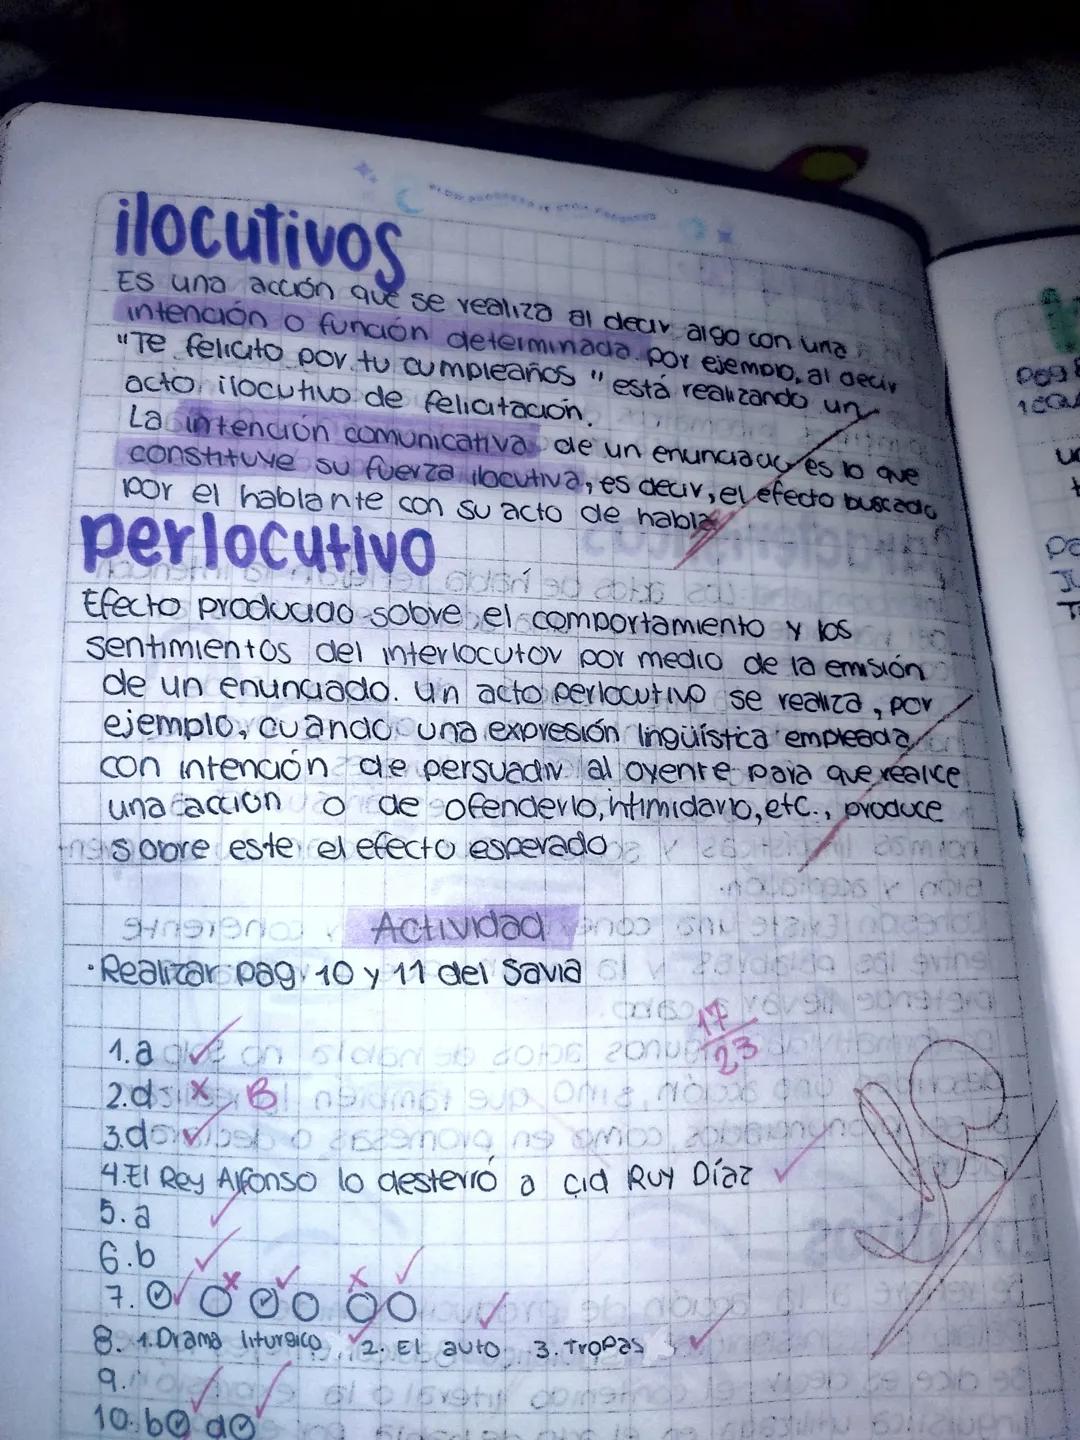 ilocutivos
Es una acción que se realiza al decir algo con una
intención o función determinada. por ejemplo, al decir
"Te felicito por tu cumpleaños" está realizando un
acto ilocutivo de felicitación.
La intención comunicativa de un enunciado es lo que
constituye su fuerza ilocutiva, es decir, el efecto buscado
por el hablante con su acto de habla
perlocutivo
Efecto producido sobre el comportamiento y los
sentimientos del interlocutor por medio de la emisión
de un enunciado. un acto perlocutivo se realiza, por
ejemplo, cuando una expresión lingüística empleada
con intención de persuadir al oyente para que realice
una acción o de ofenderlo, intimidarlo, etc., produce
sobre este el efecto esperado
Actividad
· Realizar pag. 10 y 11 del Savia
17
23
1. a
2. d x B
3. d
4. El Rey Alfonso lo desterró a Cid Ruy Díaz
5. a
6. b
7.
8. 1. Drama litúrgico 2. El auto 3. Tropas
9.
10. b d